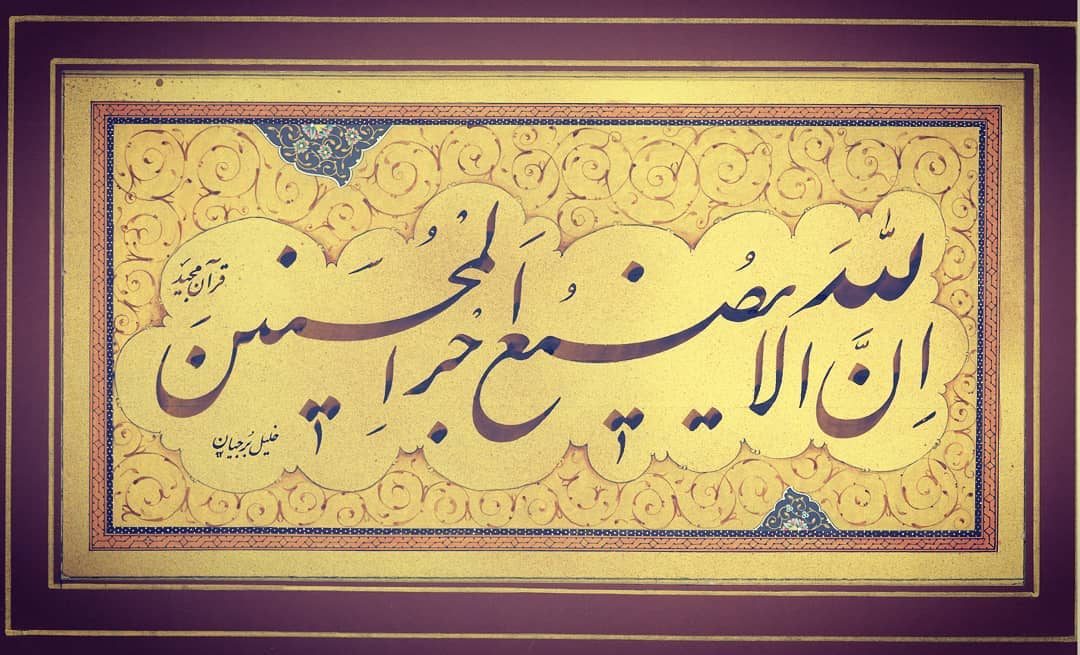 اِنَّ اللّٰهَ لا یُضیعُ اَجْرَ الْمُحْسِنینَ
قرآن مجید
خلیل بُرجیان